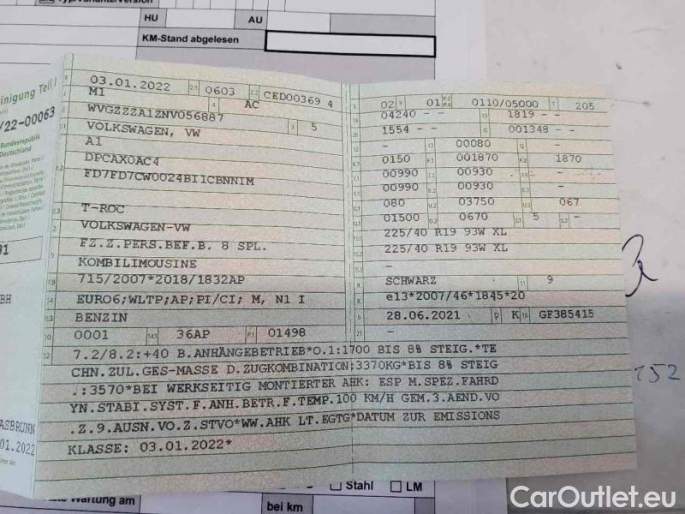 HU
AU
KM-Stand abgelesen
03.01.2022 0603 CED00369 4
M1 AC
WVGZZZA1ZNV056887
5
VOLKSWAGEN, VW
A1
DPCAX0AC4
FD7FD7CW0024BI1CBNNIM
T-ROC
VOLKSWAGEN-VW
FZ.Z.PERS.BEF.B. 8 SPL.
KOMBILIMOUSINE
715/2007*2018/1832AP
EURO6;WLTP;AP;PI/CI; M, N1 I
BENZIN
0001 36AP 01498
02 01 0110/05000 205
04240 - - 1819 - -
1554 - - 001348 - -
- 00080 -
0150 001870 1870
00990 00930 -
00990 00930 -
080 03750 067
01500 0670 5 -
225/40 R19 93W XL
225/40 R19 93W XL
-
SCHWARZ 9
e13*2007/46*1845*20
28.06.2021 K GF385415
7.2/8.2:+40 B.ANHÄNGEBETRIEB*O.1:1700 BIS 8% STEIG.*TE
CHN.ZUL.GES-MASSE D.ZUGKOMBINATION:3370KG*BIS 8% STEIG
.:3570*BEI WERKSEITIG MONTIERTER AHK: ESP M.SPEZ.FAHRD
YN.STABI.SYST.F.ANH.BETR.F.TEMP.100 KM/H GEM.3.AEND.VO
.Z.9.AUSN.VO.Z.STVO*WW.AHK LT.EGTG*DATUM ZUR EMISSIONS
KLASSE: 03.01.2022*
/22-00063
Bundesrepublik
Deutschland
01.2022
152
Wartung am
bei km
Stahl
LM
CarOutlet.eu